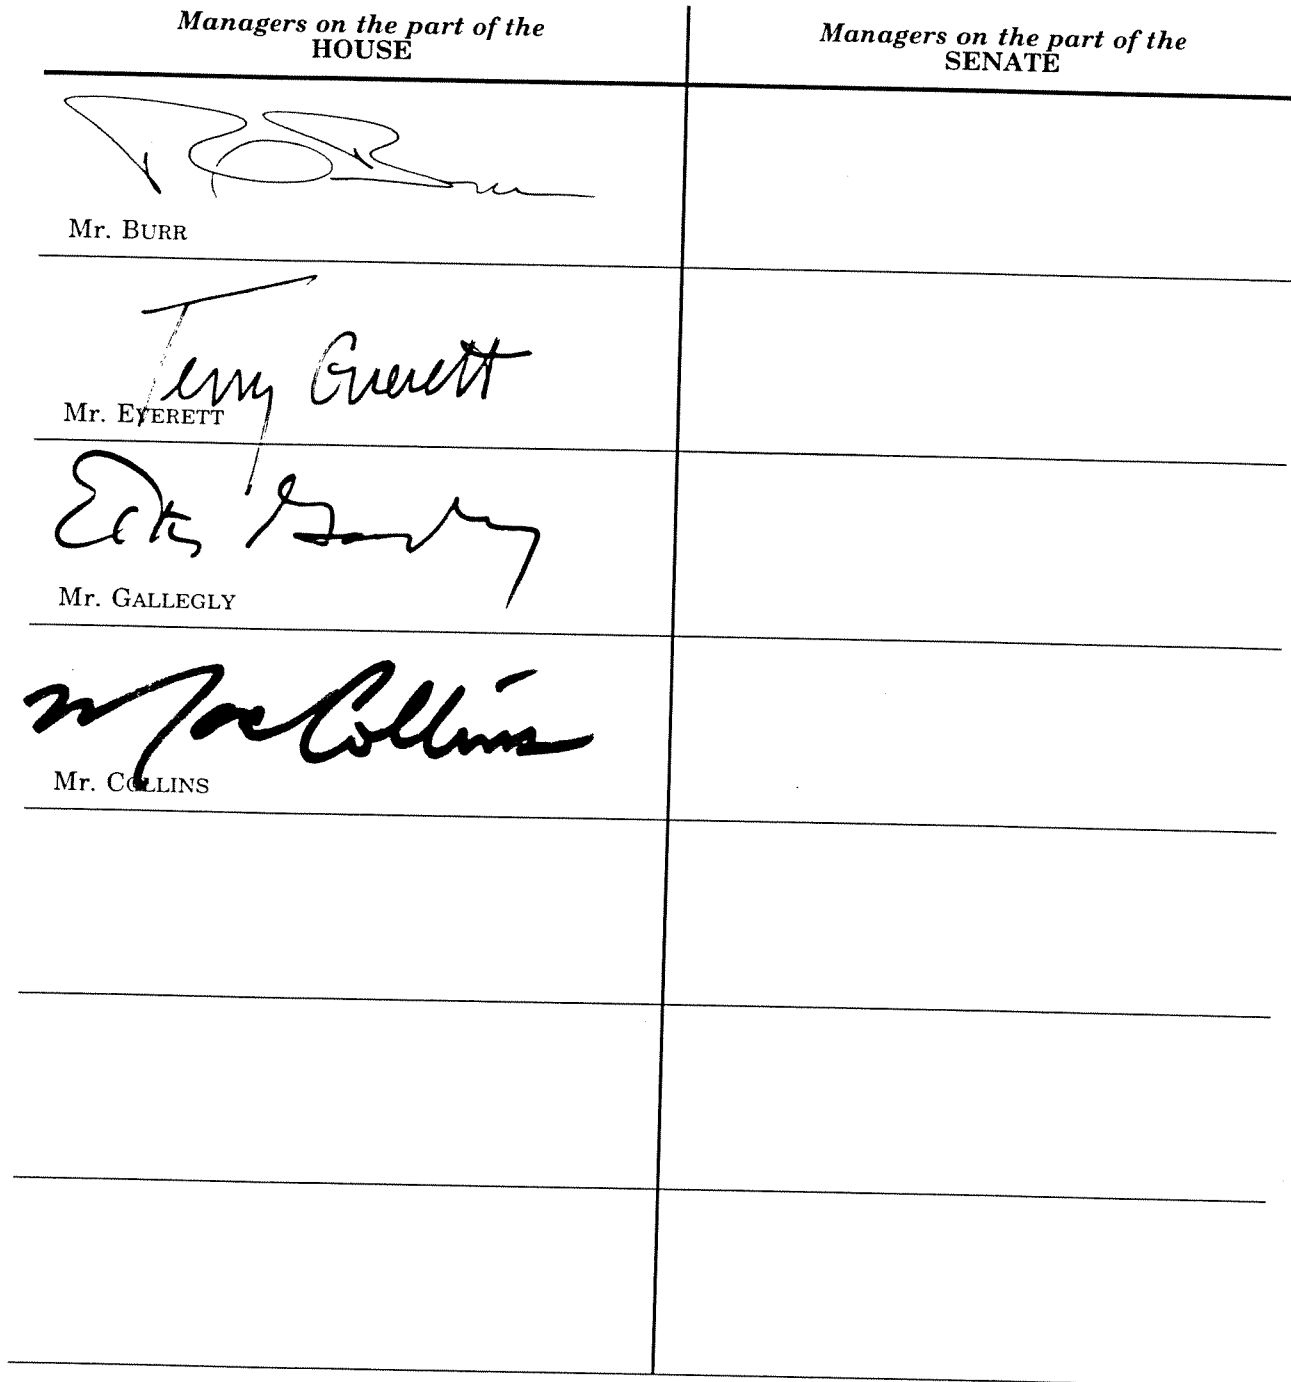 Managers on the part of the
HOUSE
Managers on the part of the
SENATE
Mr. BURR
Terry Everett
Mr. EVERETT
Elton Gallegly
Mr. GALLEGLY
Mac Collins
Mr. COLLINS